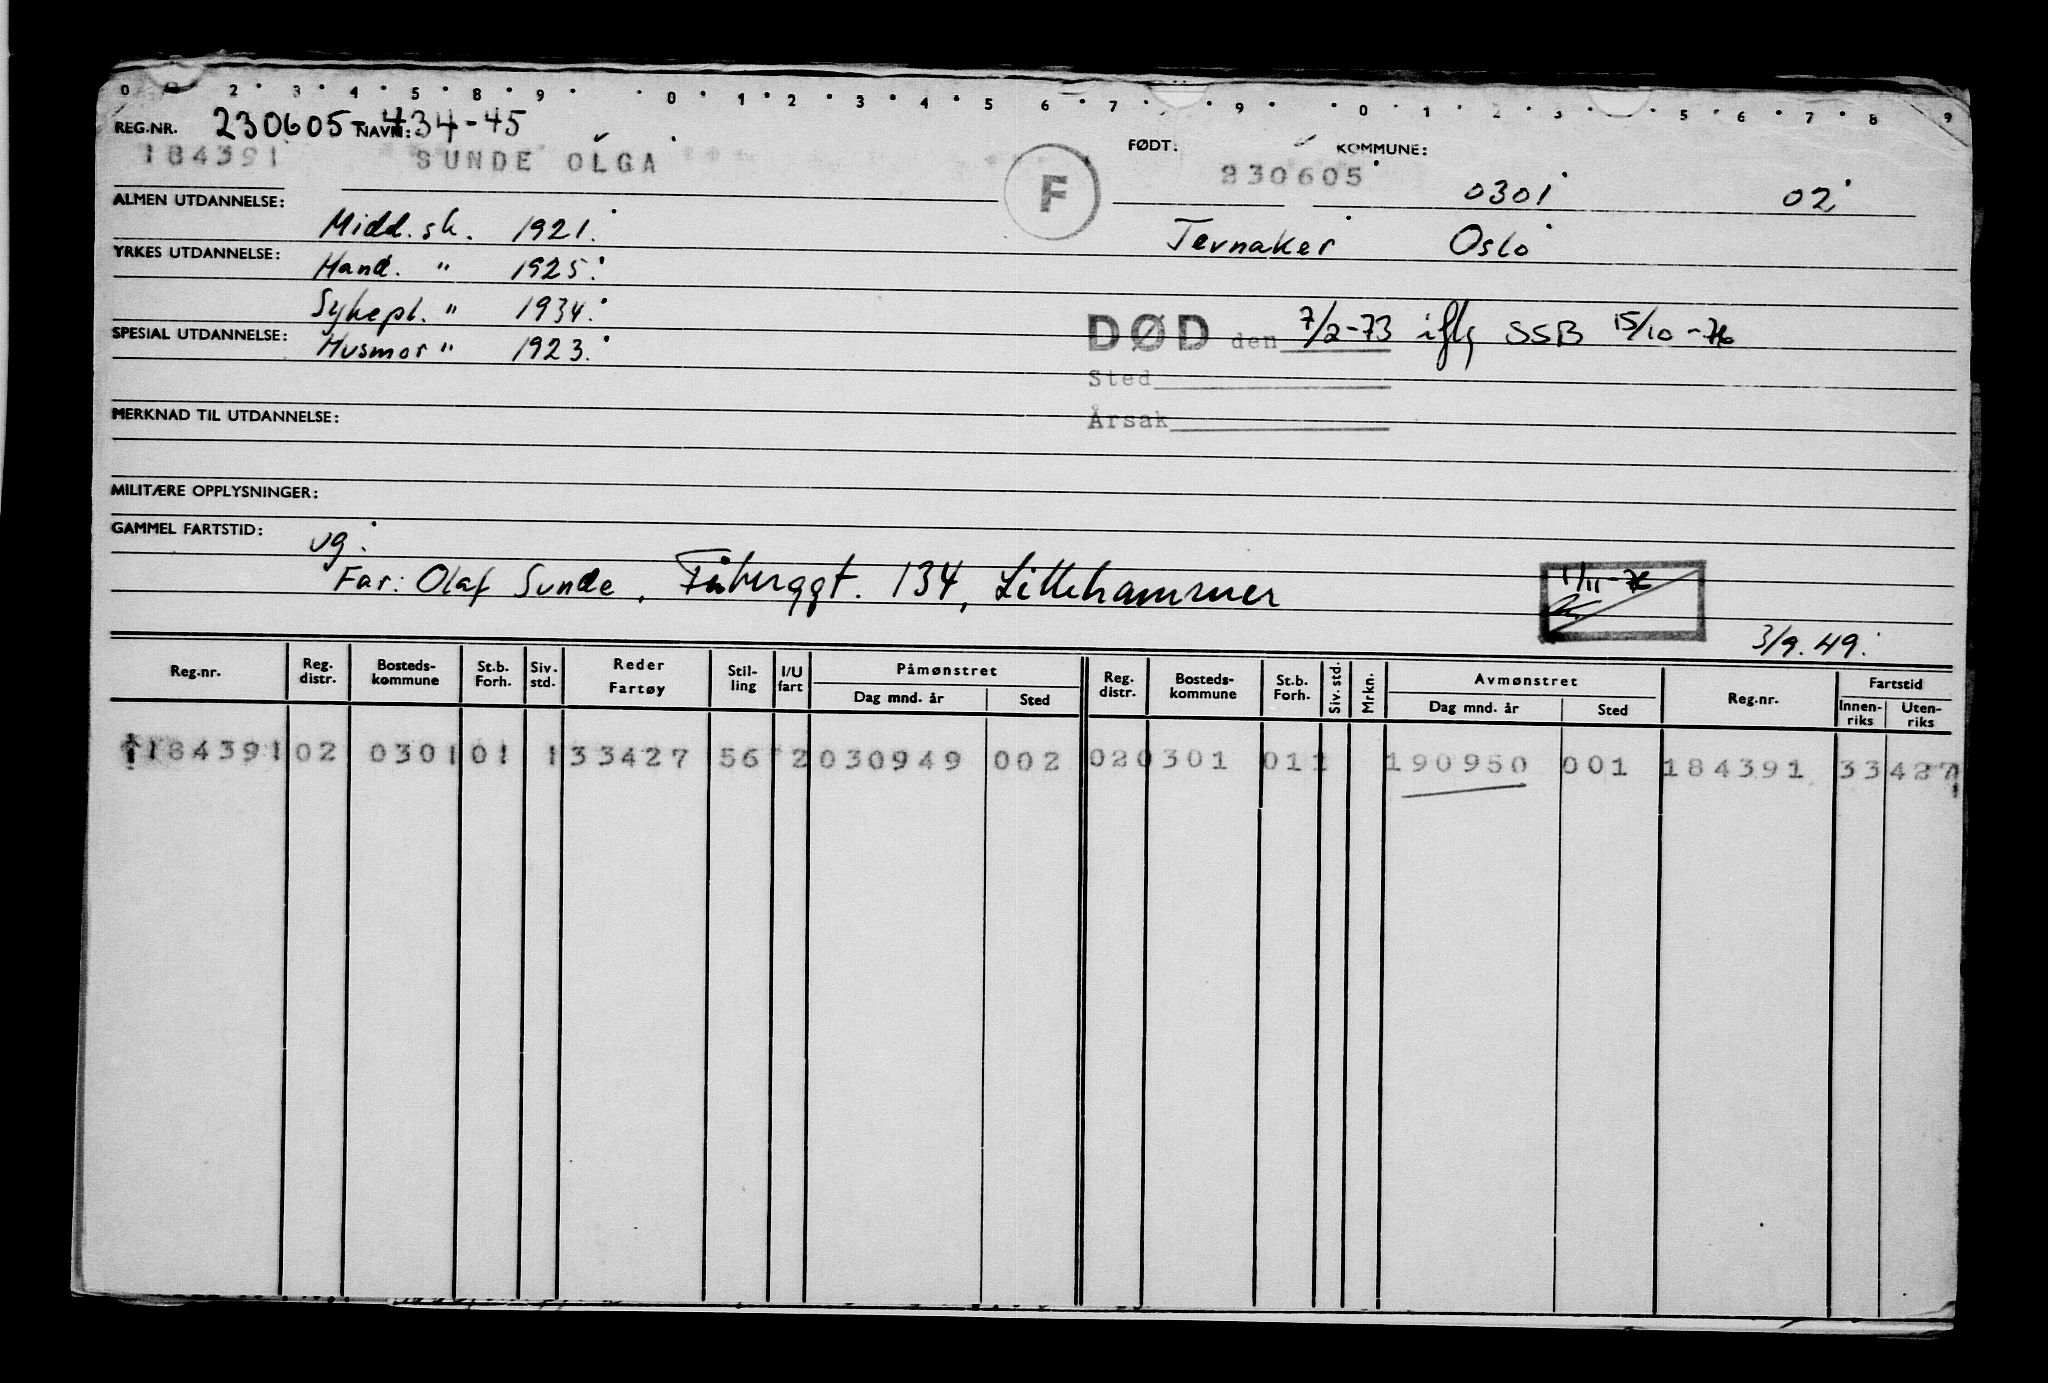 0 2 3 4 5 8 9 0 1 2 3 4 5 6 7 9 0 1 2 3 5 6 7 8 9
REG.NR. 230605-434-45 NAVN:
184391 SUNDE OLGA F FØDT: 230605 KOMMUNE: 0301 02
ALMEN UTDANNELSE: Midd.sk. 1921. Jevnaker Oslo
YRKES UTDANNELSE: Hand. " 1925.
Sykepl. " 1934.
DØD den 7/2-73 iflg SSB 15/10-76
SPESIAL UTDANNELSE: Husmor " 1923.
Sted
MERKNAD TIL UTDANNELSE:
Årsak
MILITÆRE OPPLYSNINGER:
GAMMEL FARTSTID: ug.
Far: Olaf Sunde, Fåberggt. 134, Lillehammer
1/11-76
3/9.49.
Reg.nr. Reg. distr. Bosteds-kommune St.b. Forh. Siv. std. Reder Fartøy Stil-ling I/U fart Påmønstret Dag mnd. år Sted Reg. distr. Bosteds-kommune St.b. Forh. Siv. std. Mrkn. Avmønstret Dag mnd. år Sted Reg.nr. Fartstid Innen-riks Uten-riks
184391 02 0301 01 1 33427 56 2 030949 002 02 0301 01 1 190950 001 184391 33427